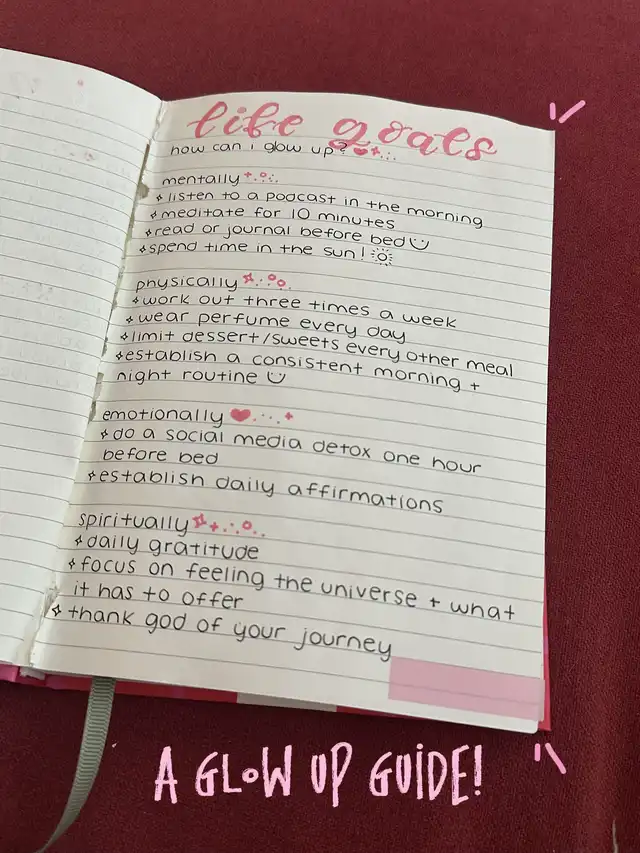 life goals
how can i glow up?
mentally
listen to a podcast in the morning
meditate for 10 minutes
read or journal before bed
spend time in the sun!
physically
work out three times a week
wear perfume every day
limit dessert/sweets every other meal
establish a consistent morning +
night routine
emotionally
do a social media detox one hour
before bed
establish daily affirmations
spiritually
daily gratitude
focus on feeling the universe + what
it has to offer
thank god of your journey
A GLOW UP GUIDE!